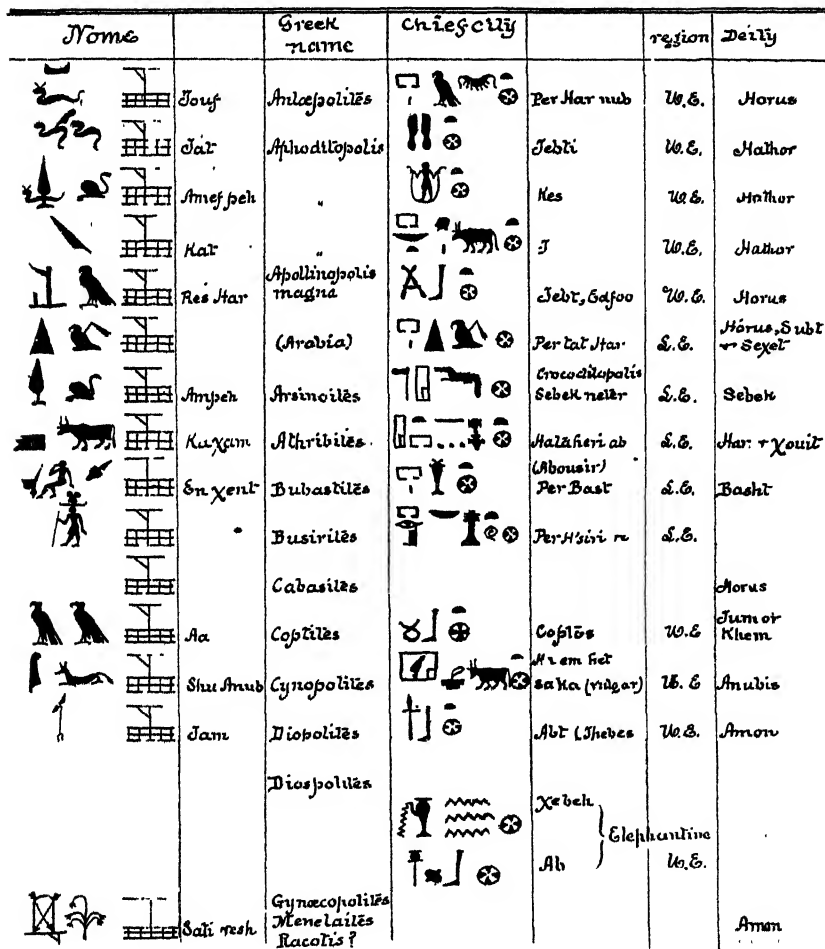 Nome Greek name Chief city region Deity
Touf Antæpolites Per Har nub U.E. Horus
Tat Aphoditopolis Tebti U.E. Hathor
Amef peh " Kes U.E. Hathor
Kat " T U.E. Hathor
Res Har Apollinopolis magna Tebt, Edfoo U.E. Horus
(Arabia) Per tat Har L.E. Horus, Subt + Sexet
Ampeh Arsinoites Crocodilopolis Sebek neter L.E. Sebek
Kuχam Athribites Hataheri ab L.E. Har. + χouit
En χent Bubastites (Abousir) Per Bast L.E. Basht
" Busirites Per H'siri n L.E.
Cabasites Horus
Aa Coptites Coptos U.E Tum or Khem
Shu Anub Cynopolites em het saka (vulgar) U.E Anubis
Tam Diopolites Abt (Thebes U.E. Amon
Diospolites
χebeh
Elephantine
Ab U.E.
Sati resh Gynæcopolites Menelaites Racotis? Amon